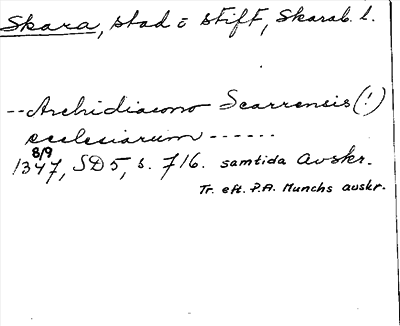 Skara, stad o stift, Skarab. l.
-- Archidiacono Scarrensis (!)
ecclesiarum ------
8/9
1347, SD 5, s. 716. samtida avskr.
Tr. eft. P.A. Munchs avskr.